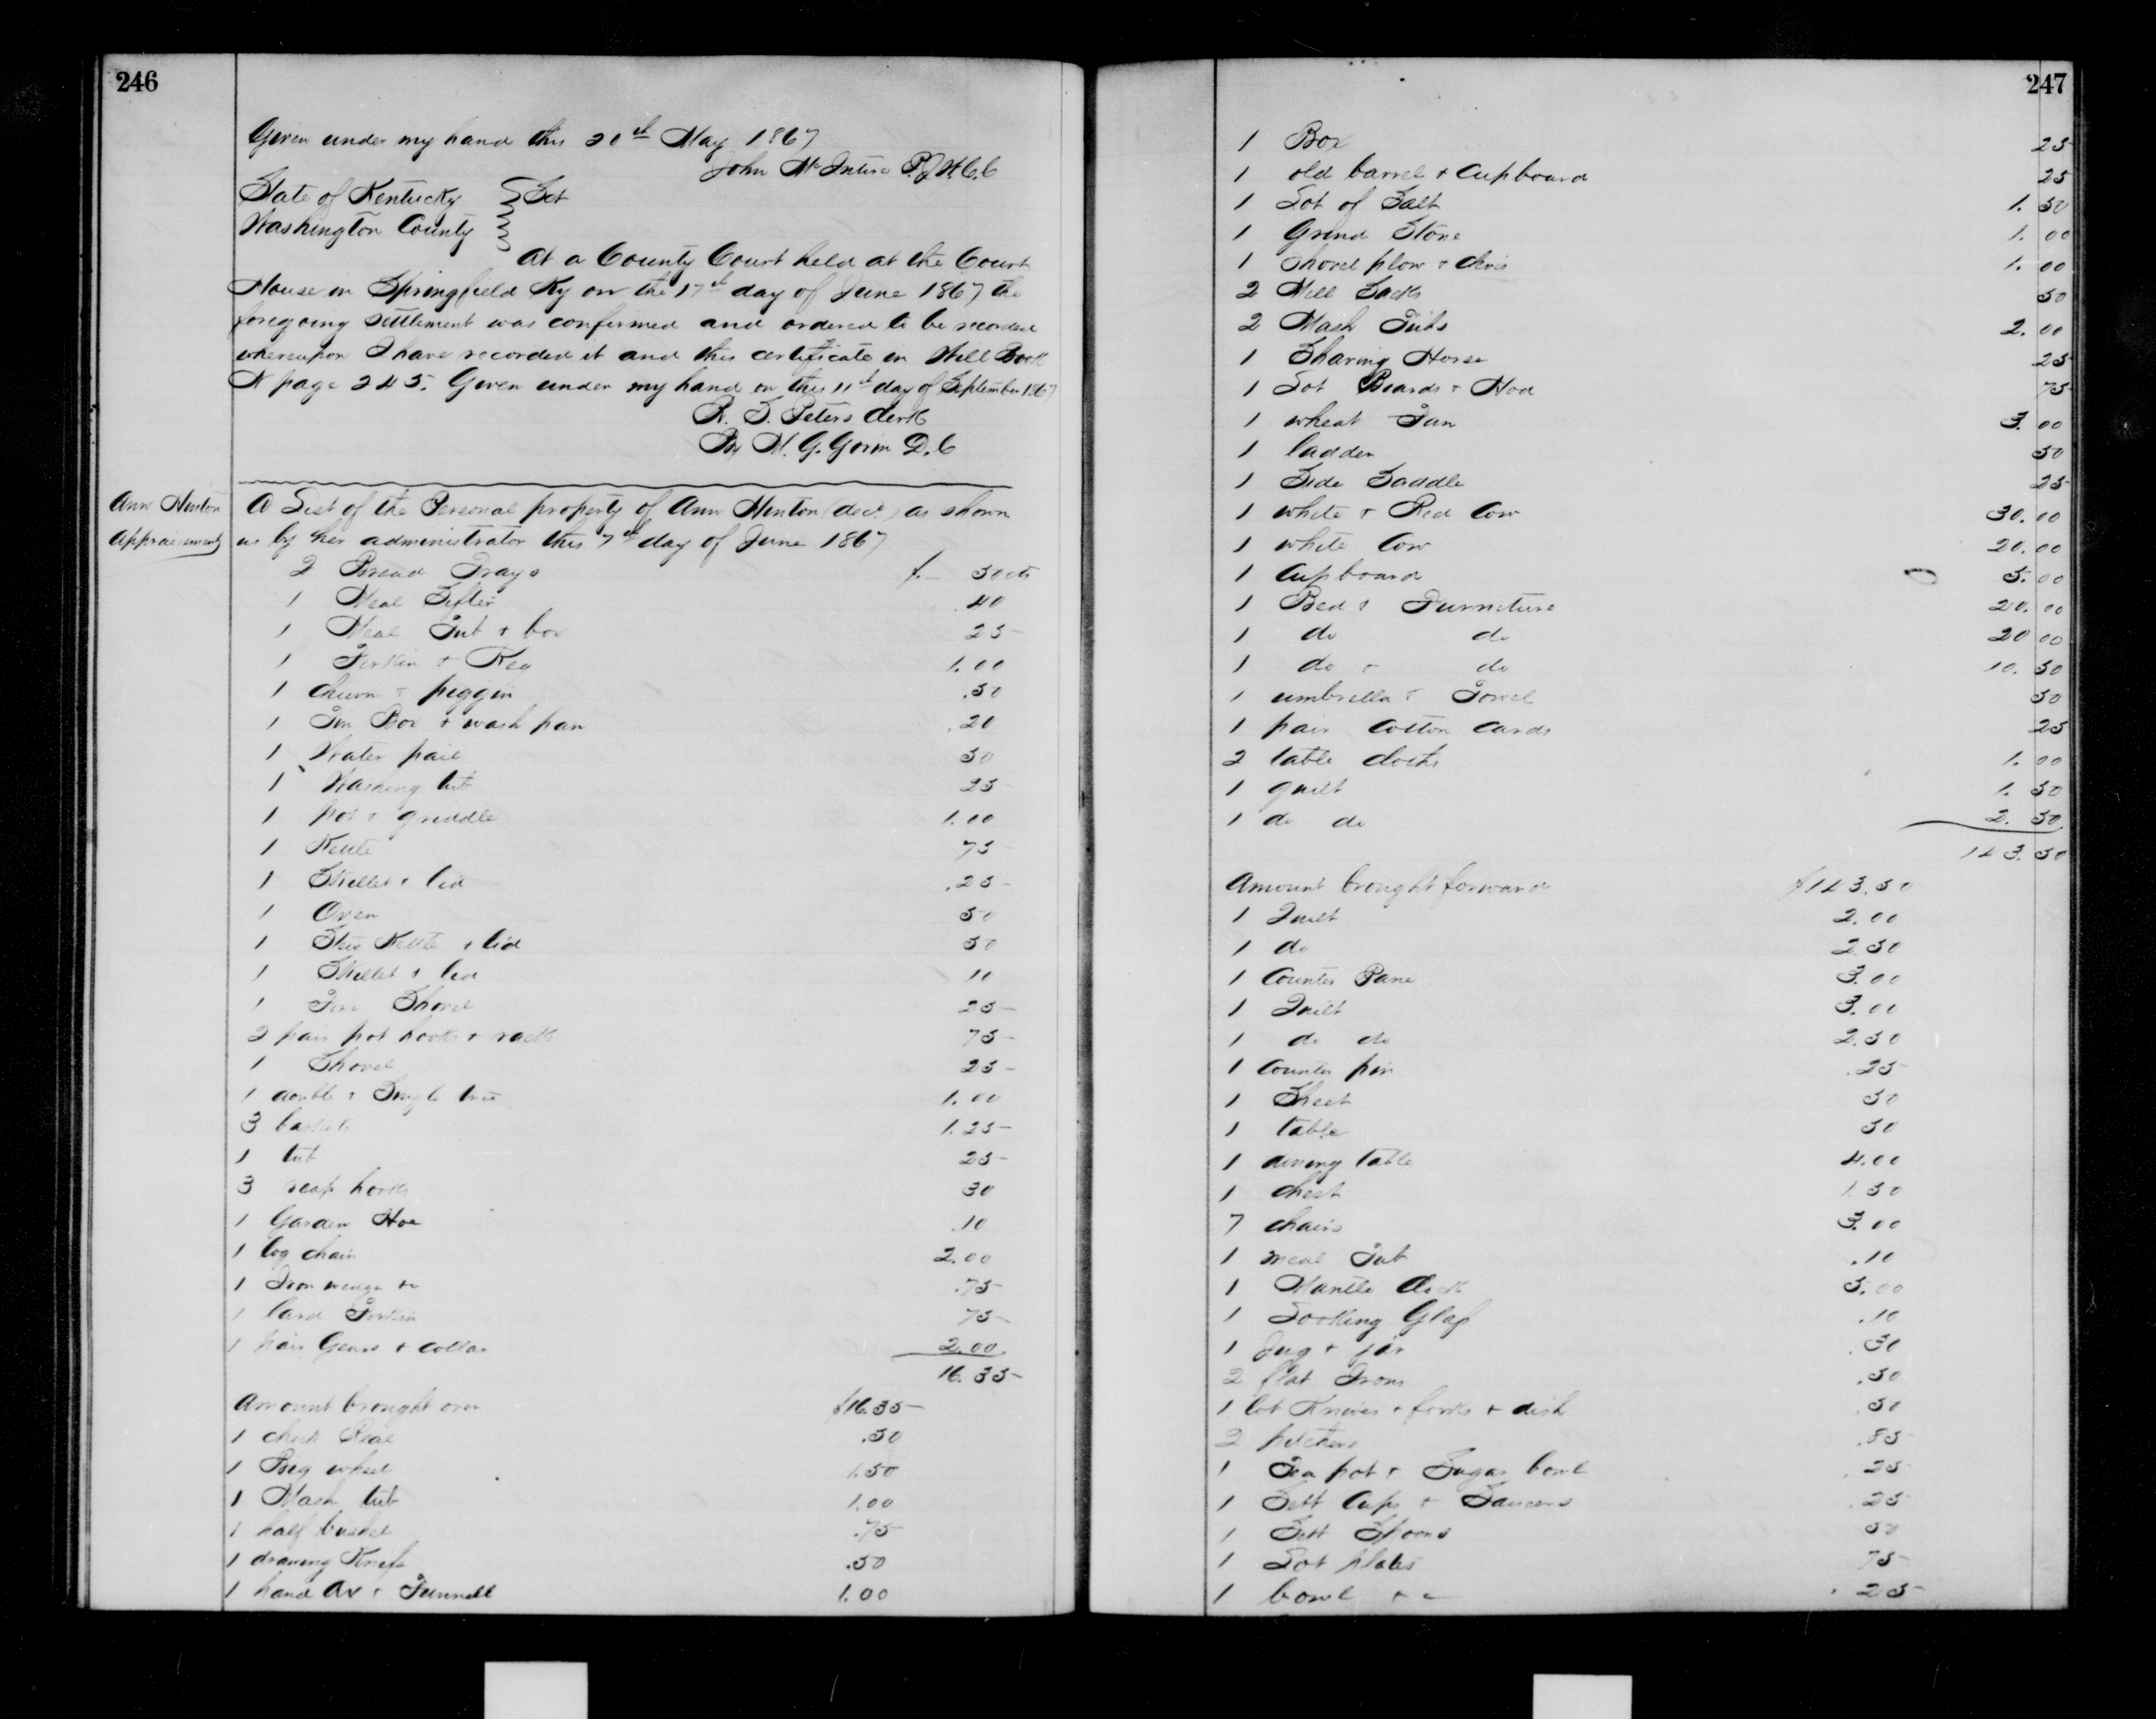 246
Given under my hand this 20th May 1867
John McIntire P.J.W.C.C
State of Kentucky } Sct
Washington County
At a County Court held at the Court
House in Springfield Ky on the 17th day of June 1867 the
foregoing settlement was confirmed and ordered to be recorded
whereupon I have recorded it and this certificate in Will Book
page 245. Given under my hand on this 11th day of September 1867
Peters Clerk
By G. Gorin D.C
Ann Hinton
Appraisement
A List of the Personal property of Ann Hinton (decd.) as shown
us by her administrator this 7th day of June 1867
2 Bread Trays $.— 50cts
1 Meal Sifter .40
1 Meal Tub + box 25
1 Firkin + Keg 1.00
1 Churn + piggin .50
1 Tin Box + wash pan .20
1 Water pail 50
1 Washing tub 25
1 pot + griddle 1.00
1 Kettle 75
1 Skillet + lid .25
1 Oven 50
1 Stew Kettle + lid 50
1 Skillet + lid 10
1 Fire Shovel 25
2 pair pot hooks + rack 75
1 Shovel 25
1 double + Single tree 1.00
3 baskets 1.25
1 tub 25
3 reap hooks 30
1 Garden Hoe .10
1 log chain 2.00
1 Iron wedge +c .75
1 lard Firkin 75
1 pair Gears + collar 2.00
16.35
Amount brought over $16.35
1 check Real .50
1 Big wheel 1.50
1 Mash tub 1.00
1 half bushel .75
1 drawing Knife .50
1 hand Ax + Funnell 1.00
247
1 Box 25
1 old barrel + Cupboard 25
1 Lot of Salt 1.50
1 Grind Stone 1.00
1 Shovel plow + clevis 1.00
2 Mill Sacks 50
2 Mash Tubs 2.00
1 Shaving Horse 25
1 Lot Boards + Hod 75
1 wheat Fan 3.00
1 ladder 50
1 Side Saddle 25
1 white + Red Cow 30.00
1 white Cow 20.00
1 Cupboard 5.00
1 Bed + Furniture 20.00
1 do do 20 00
1 do + do 10.50
1 umbrella + Towel 50
1 pair Cotton Cards 25
2 table cloths 1.00
1 quilt 1.50
1 do do 2.50
143.50
Amount brought forward $143.50
1 Quilt 2.00
1 do 2.50
1 Counter Pane 3.00
1 Quilt 3.00
1 do do 2.50
1 Counter pin .25
1 Sheet 50
1 table 50
1 dining table 4.00
1 chest 1.50
7 chairs 3.00
1 meal Tub .10
1 Mantle Clock 5.00
1 Looking Glass .10
1 Jug + jar .30
2 flat Irons .50
1 lot Knives + forks + dish 50
2 pitchers .85
1 Tea pot + Sugar bowl .25
1 Sett Cups + Saucers .25
1 Sett Spoons 50
1 Lot plates 75
1 bowl +c .25